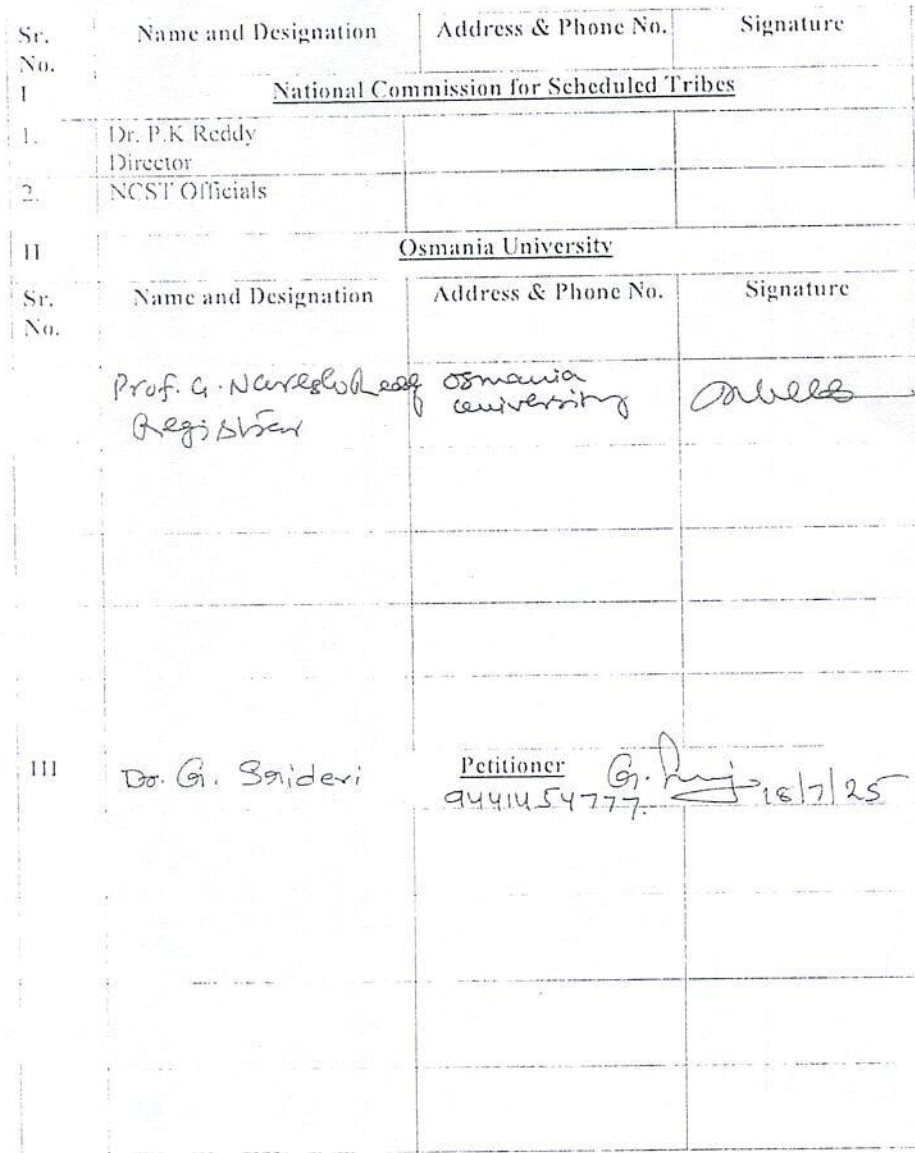 Sr. No. Name and Designation Address & Phone No. Signature
I National Commission for Scheduled Tribes
1. Dr. P.K Reddy
Director
2. NCST Officials
II Osmania University
Sr. No. Name and Designation Address & Phone No. Signature
Prof. G. Naresh Reddy Osmania
Registrar university
III Dr. G. Sridevi Petitioner G.
9441454777. 18/7/25